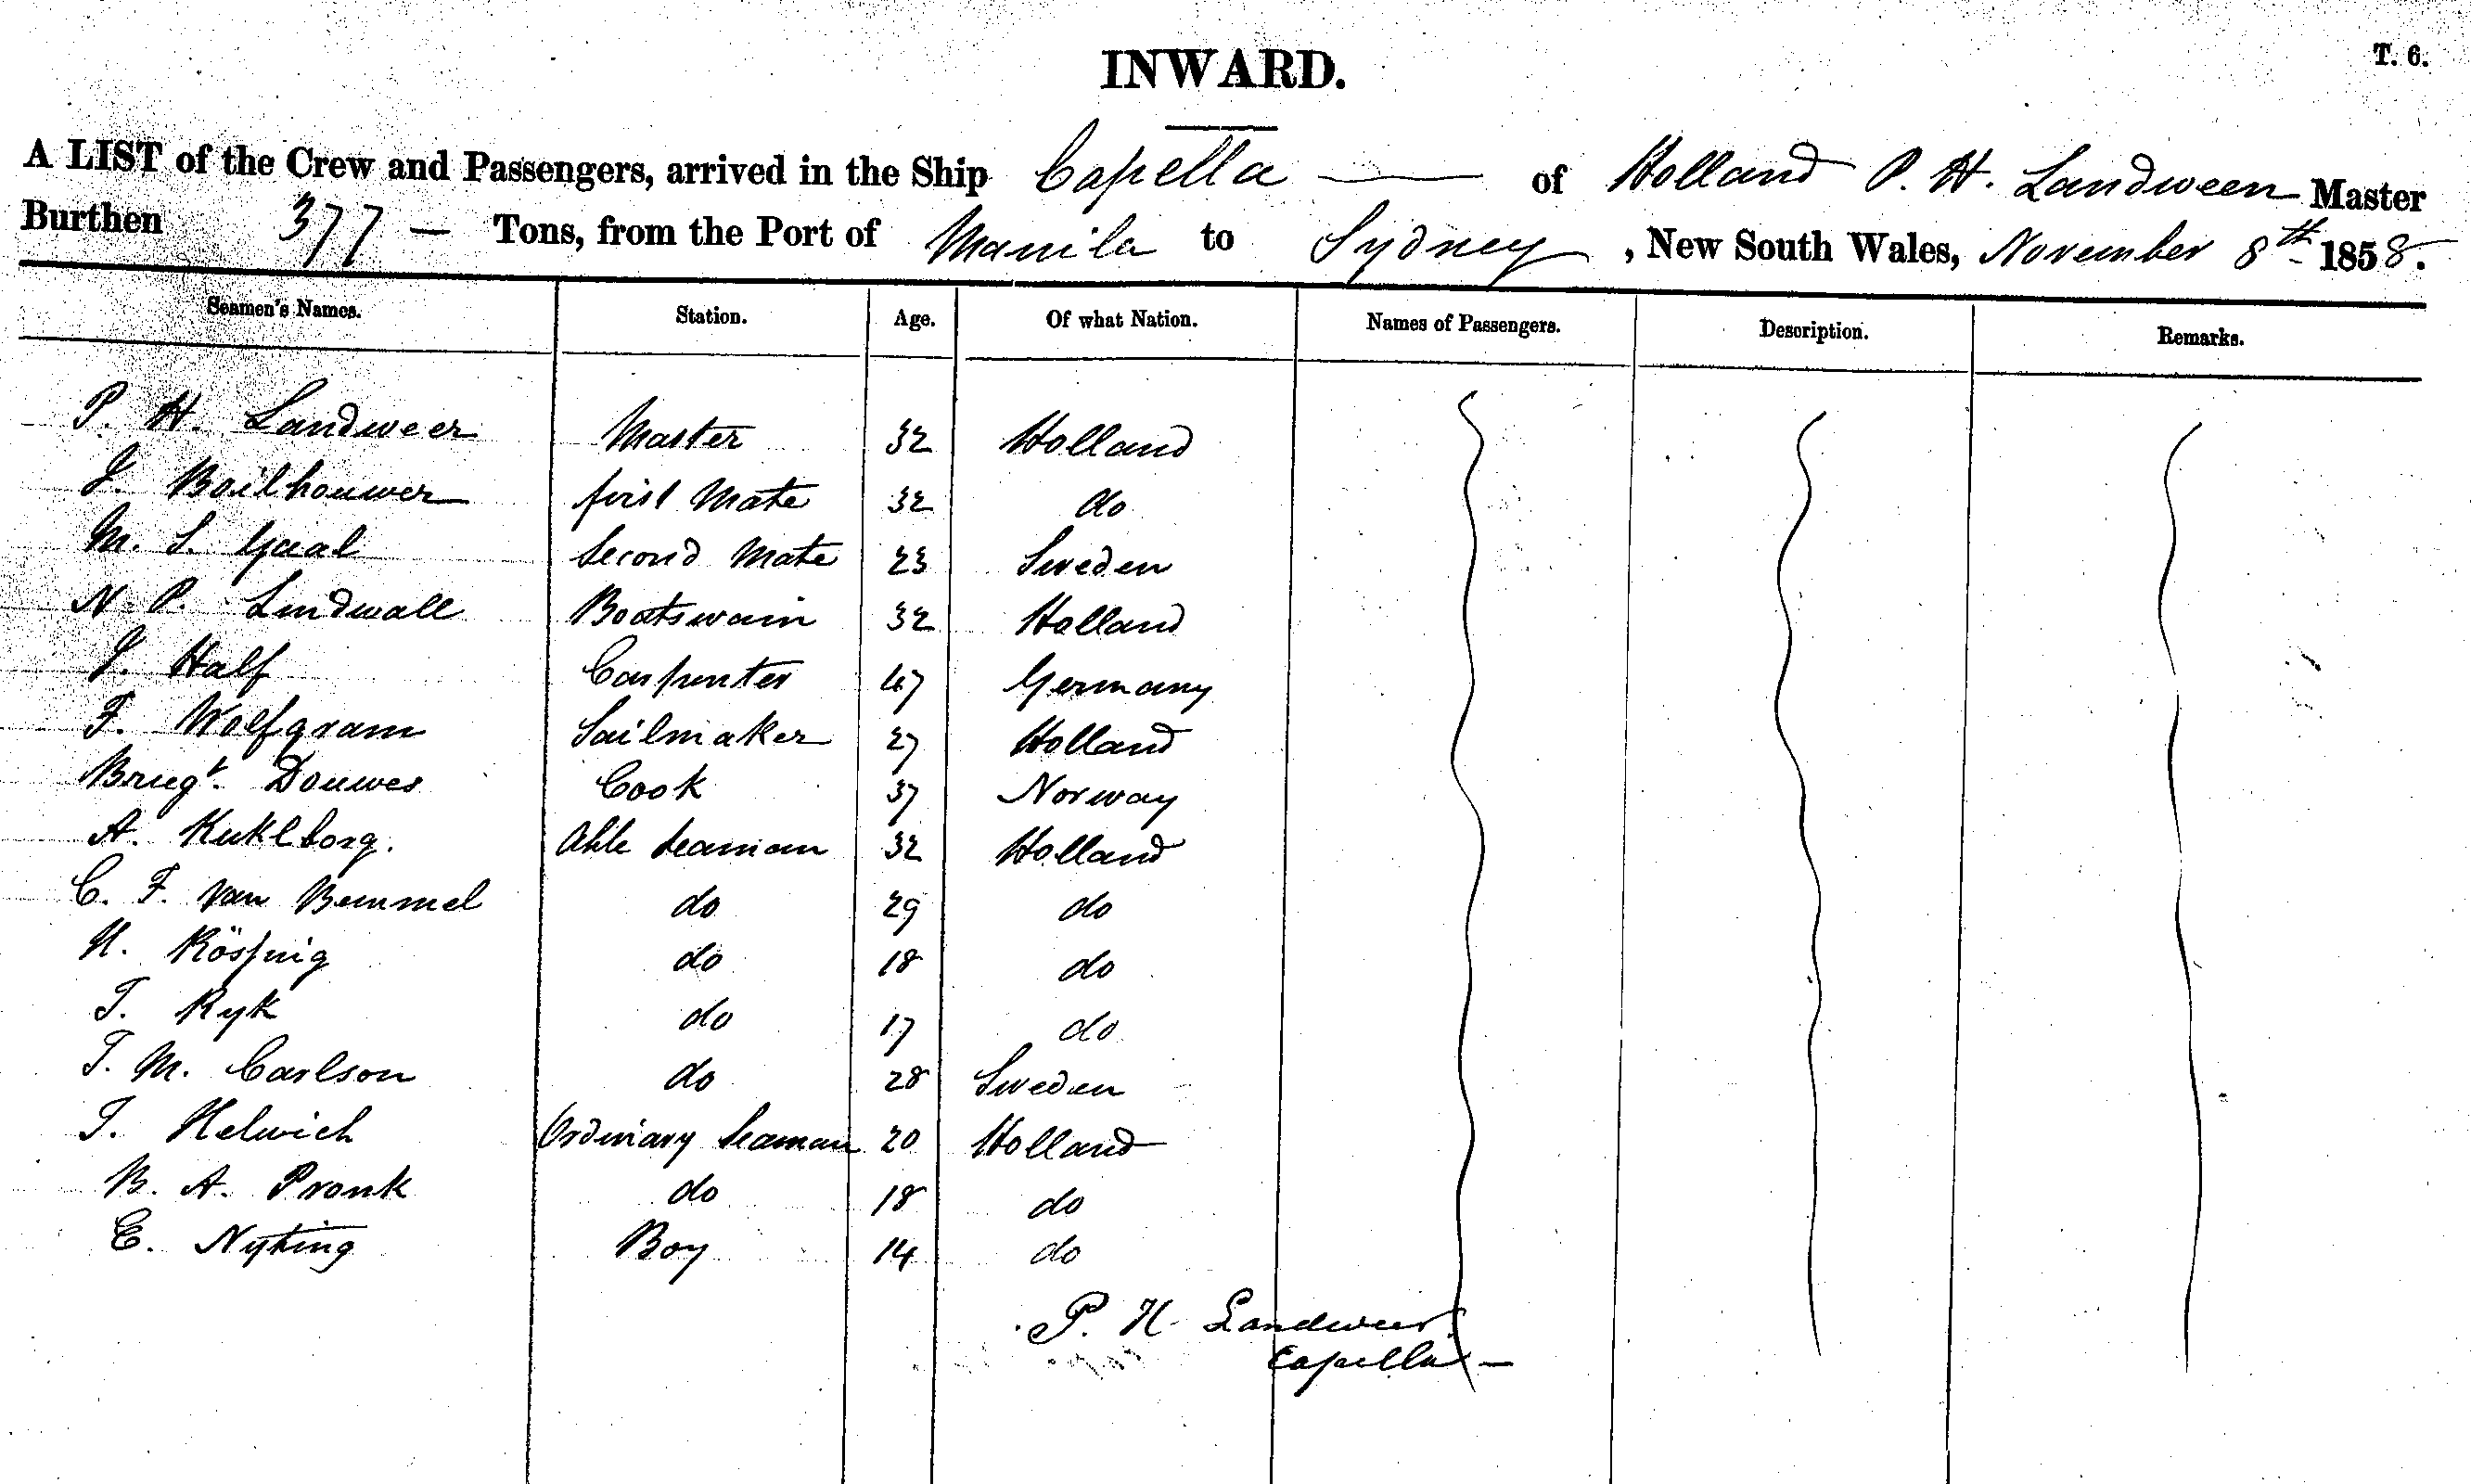 INWARD.
T. 6.
A LIST of the Crew and Passengers, arrived in the Ship Capella — of Holland P. H. Landween Master
Burthen 377 — Tons, from the Port of Manila to Sydney, New South Wales, November 8th 1858.
Seamen's Names. Station. Age. Of what Nation. Names of Passengers. Description. Remarks.
P. H. Landweer Master 32 Holland
J. Boilhouwer first Mate 32 do
M. S. Gaal Second Mate 23 Sweden
N. P. Lindwall Boatswain 32 Holland
J. Half Carpenter 47 Germany
F. Wolfgram Sailmaker 27 Holland
Brugt. Douwes Cook 37 Norway
A. Kuklborg. Able Seaman 32 Holland
C. F. van Bemmel do 29 do
H. do 18 do
T. Ryk do 17 do
T. M. Carlson do 28 Sweden
T. Helwich Ordinary Seaman 20 Holland
B. A. Pronk do 18 do
E. Nyting Boy 14 do
P. H. Landweer
Capella —